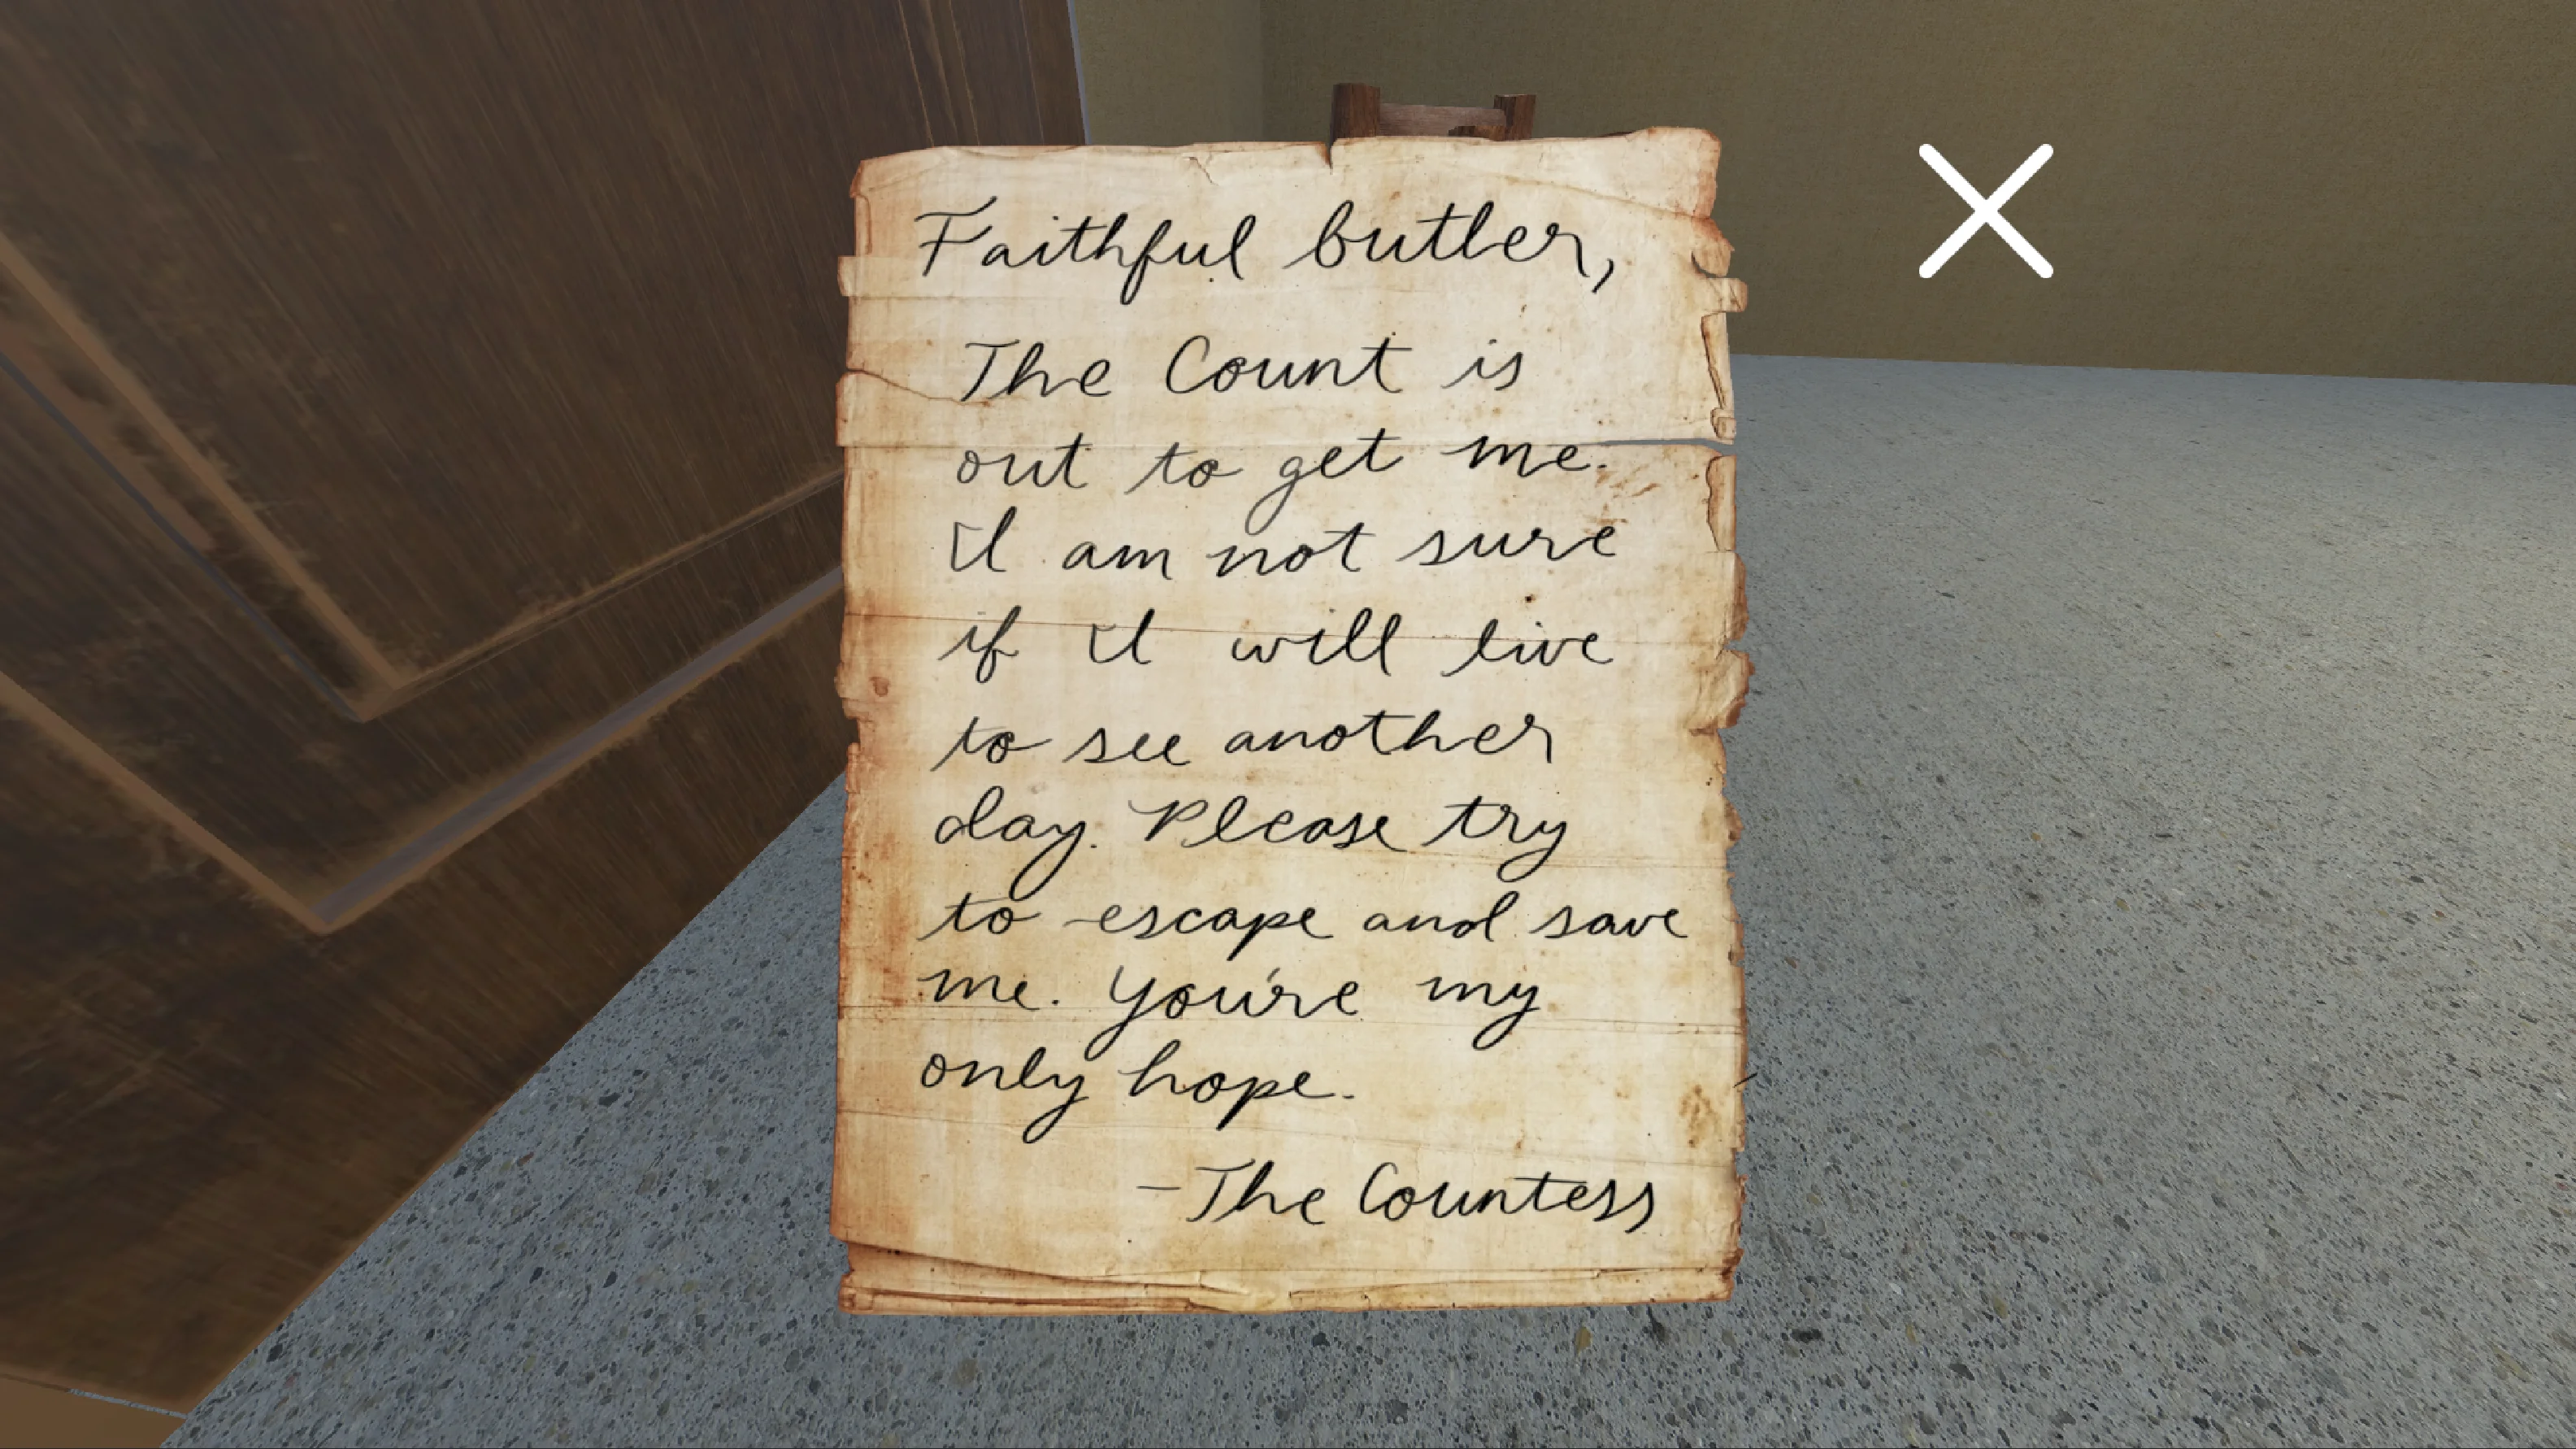 Faithful butler,
The Count is
out to get me.
I am not sure
if I will live
to see another
day. Please try
to escape and save
me. You're my
only hope.
-The Countess